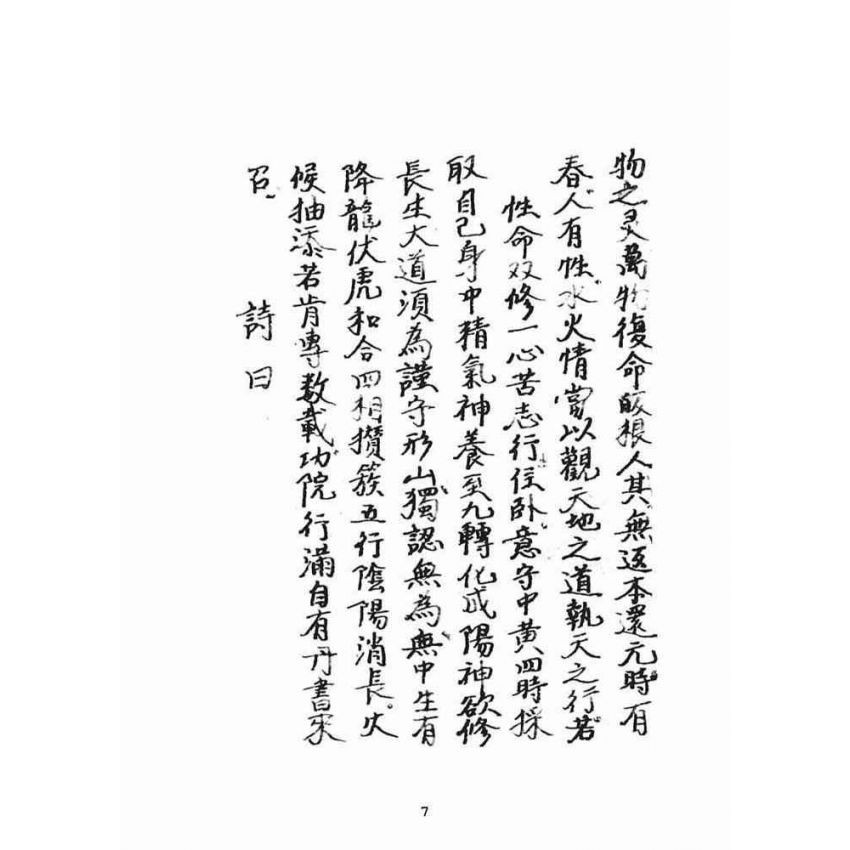 物之灵萬物復命皈根人其無返本還元時有
春人有性水火情當以觀天地之道執天之行若
性命双修一心苦志行住卧意守中黄四時採
取自己身中精氣神養至九轉化成陽神欲修
長生大道須為謹守形山獨認無為無中生有
降龍伏虎和合四相攢簇五行陰陽消長火
候抽添若肯專数載功院行滿自有丹書來
召
詩曰
7